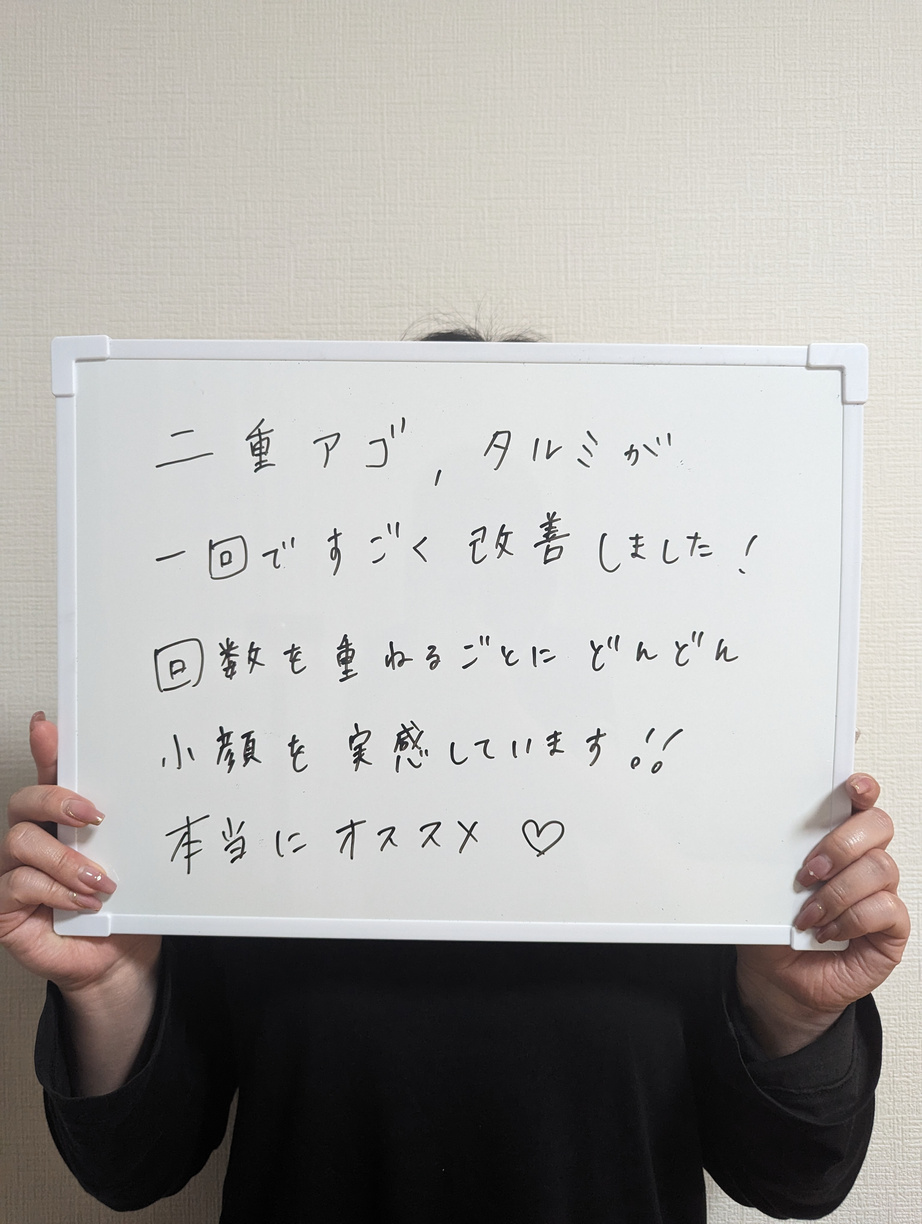 二重アゴ,タルミが
一回ですごく改善しました!
回数を重ねるごとにどんどん
小顔を実感しています!!
本当にオススメ♡